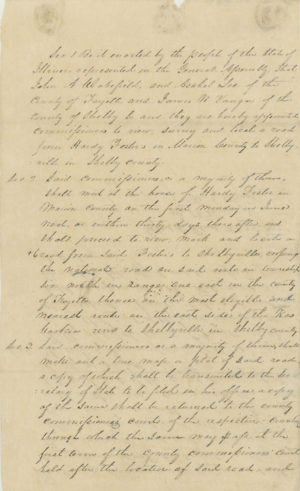 Sec 1 Be it enacted by the people of the State of
Illinois represented in the General Assembly That
John A Wakefield, and Asahel Lee of the
County of Fayette and James W Vaughn of the
County of Shelby be and they are hereby appointed
commissioners to view, survey and locate a road
from Hardy Fosters in Marion County to Shelby-
ville in Shelby county
Sec 2 Said commissioners, or a majority of them,
shall meet at the house of Hardy Foster in
Marion County on the first monday in June
next, or within thirty days thereafter, and
shall proceed to view, mark and locate a
road from Said Fosters to Shelbyville, crossing
the national road on said route in township
north in Range one east in the county
of Fayette, thence on the most eligible and
nearest route on the east side of the Kas
kaskia river to Shelbyville in Shelby county
Sec 3 Said commissioners or a majority of them shall
make out a true map or plat of said road
a copy of which shall be transmitted to the Sec
retary of State to be filed in his office, a copy
of the same shall be returned to the county
commissioners court of the respective counties
through which the same may pass at the
first term of the County commissioners court
held after the location of said road and